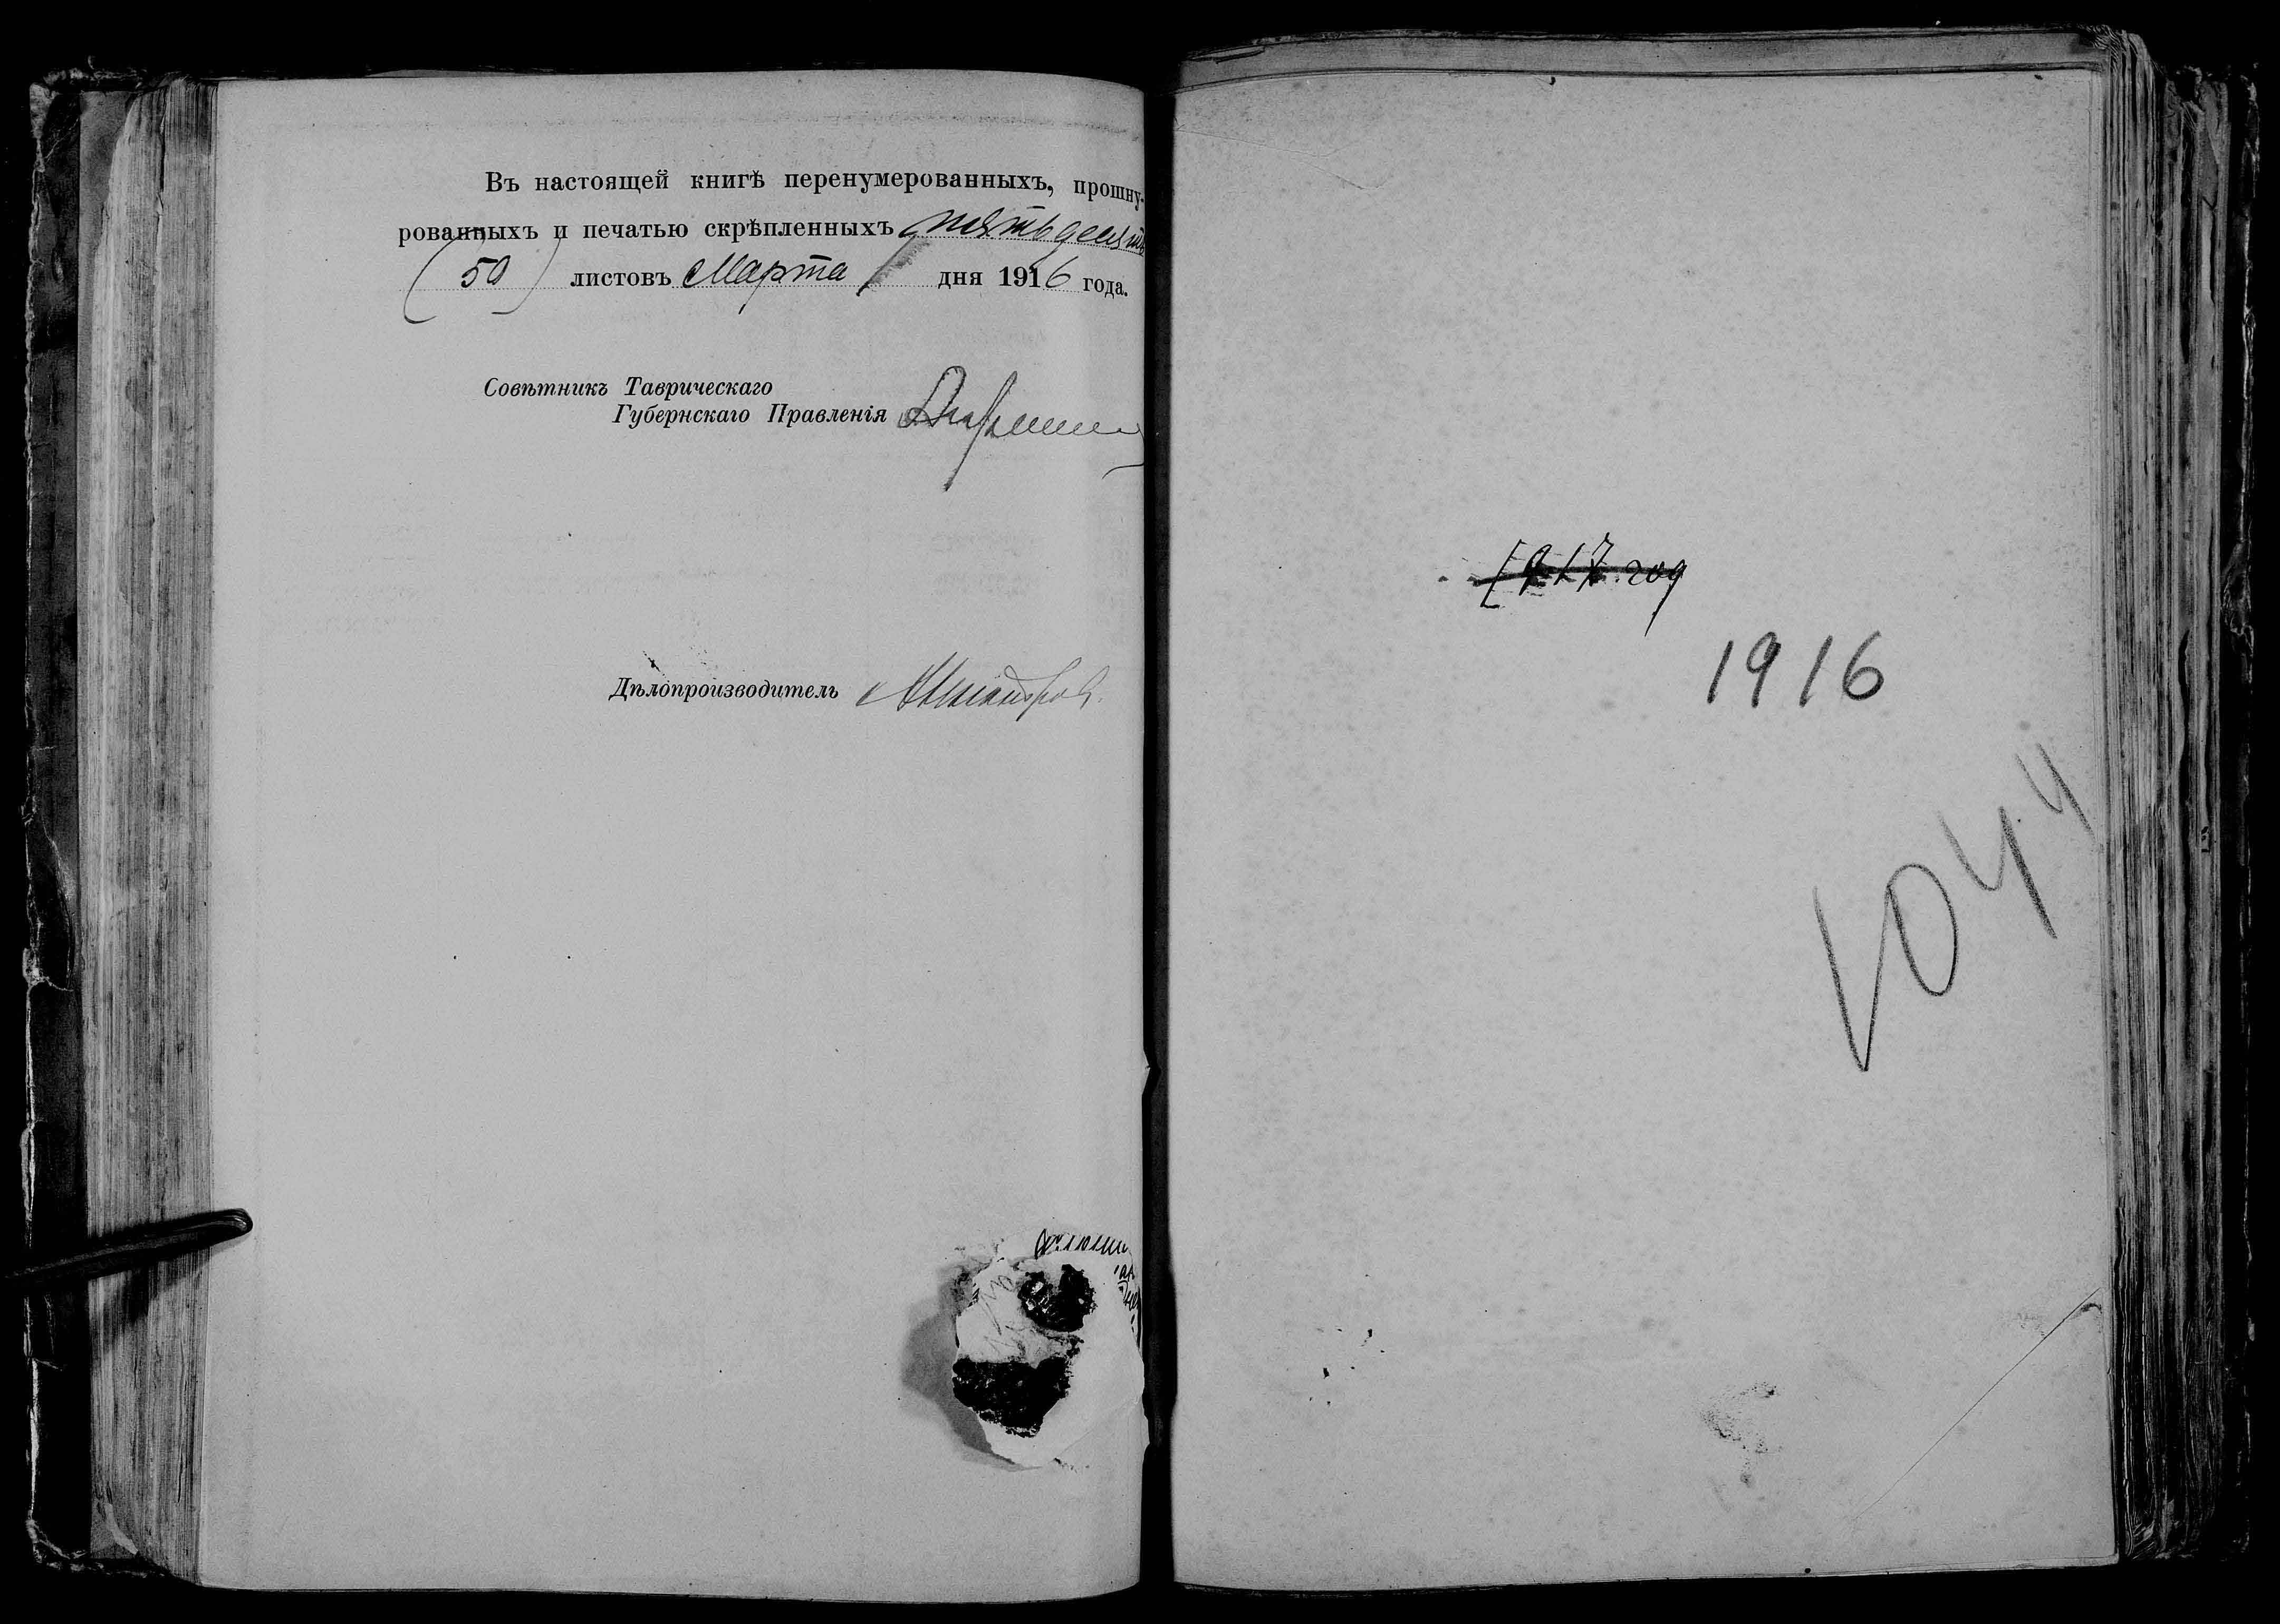 Въ настоящей книгѣ перенумерованныхъ, прошну-
рованныхъ и печатью скрѣпленныхъ пятьдесятъ
(50) листовъ Марта 1 дня 1916 года.
Совѣтникъ Таврическаго
Губернскаго Правленія
Дѣлопроизводитель
1917 год
1916
1044